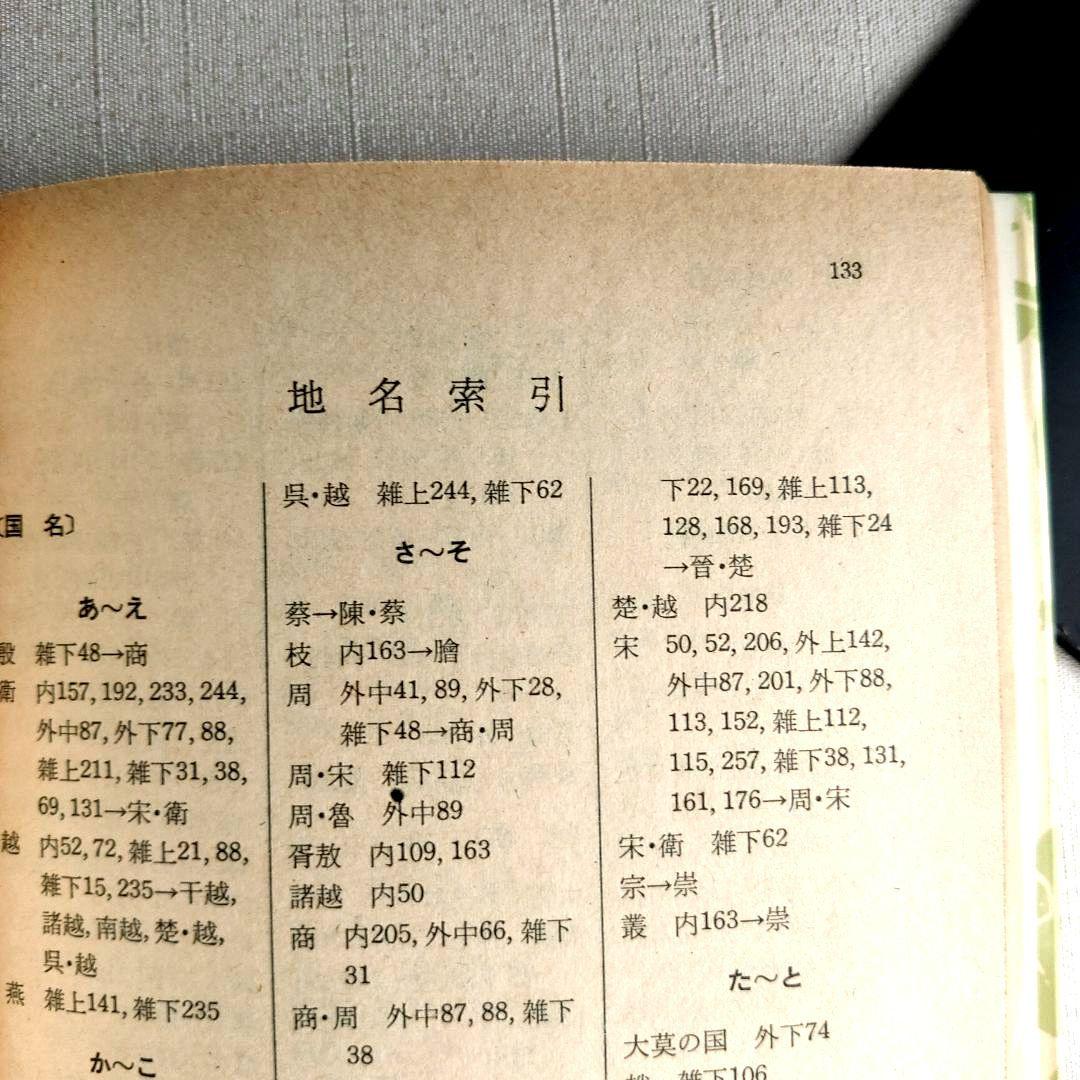 133
地名索引
〔国 名〕
あ～え
殷 雑下48→商
衛 内157, 192, 233, 244,
外中87, 外下77, 88,
雑上211, 雑下31, 38,
69, 131→宋・衛
越 内52, 72, 雑上21, 88,
雑下15, 235→干越,
諸越, 南越, 楚・越,
呉・越
燕 雑上141, 雑下235
か～こ
呉・越 雑上244, 雑下62
さ～そ
蔡→陳・蔡
枝 内163→膾
周 外中41, 89, 外下28,
雑下48→商・周
周・宋 雑下112
周・魯 外中89
胥敖 内109, 163
諸越 内50
商 内205, 外中66, 雑下
31
商・周 外中87, 88, 雑下
38
下22, 169, 雑上113,
128, 168, 193, 雑下24
→晉・楚
楚・越 内218
宋 50, 52, 206, 外上142,
外中87, 201, 外下88,
113, 152, 雑上112,
115, 257, 雑下38, 131,
161, 176→周・宋
宋・衛 雑下62
宗→崇
叢 内163→崇
た～と
大莫の国 外下74
雑下106